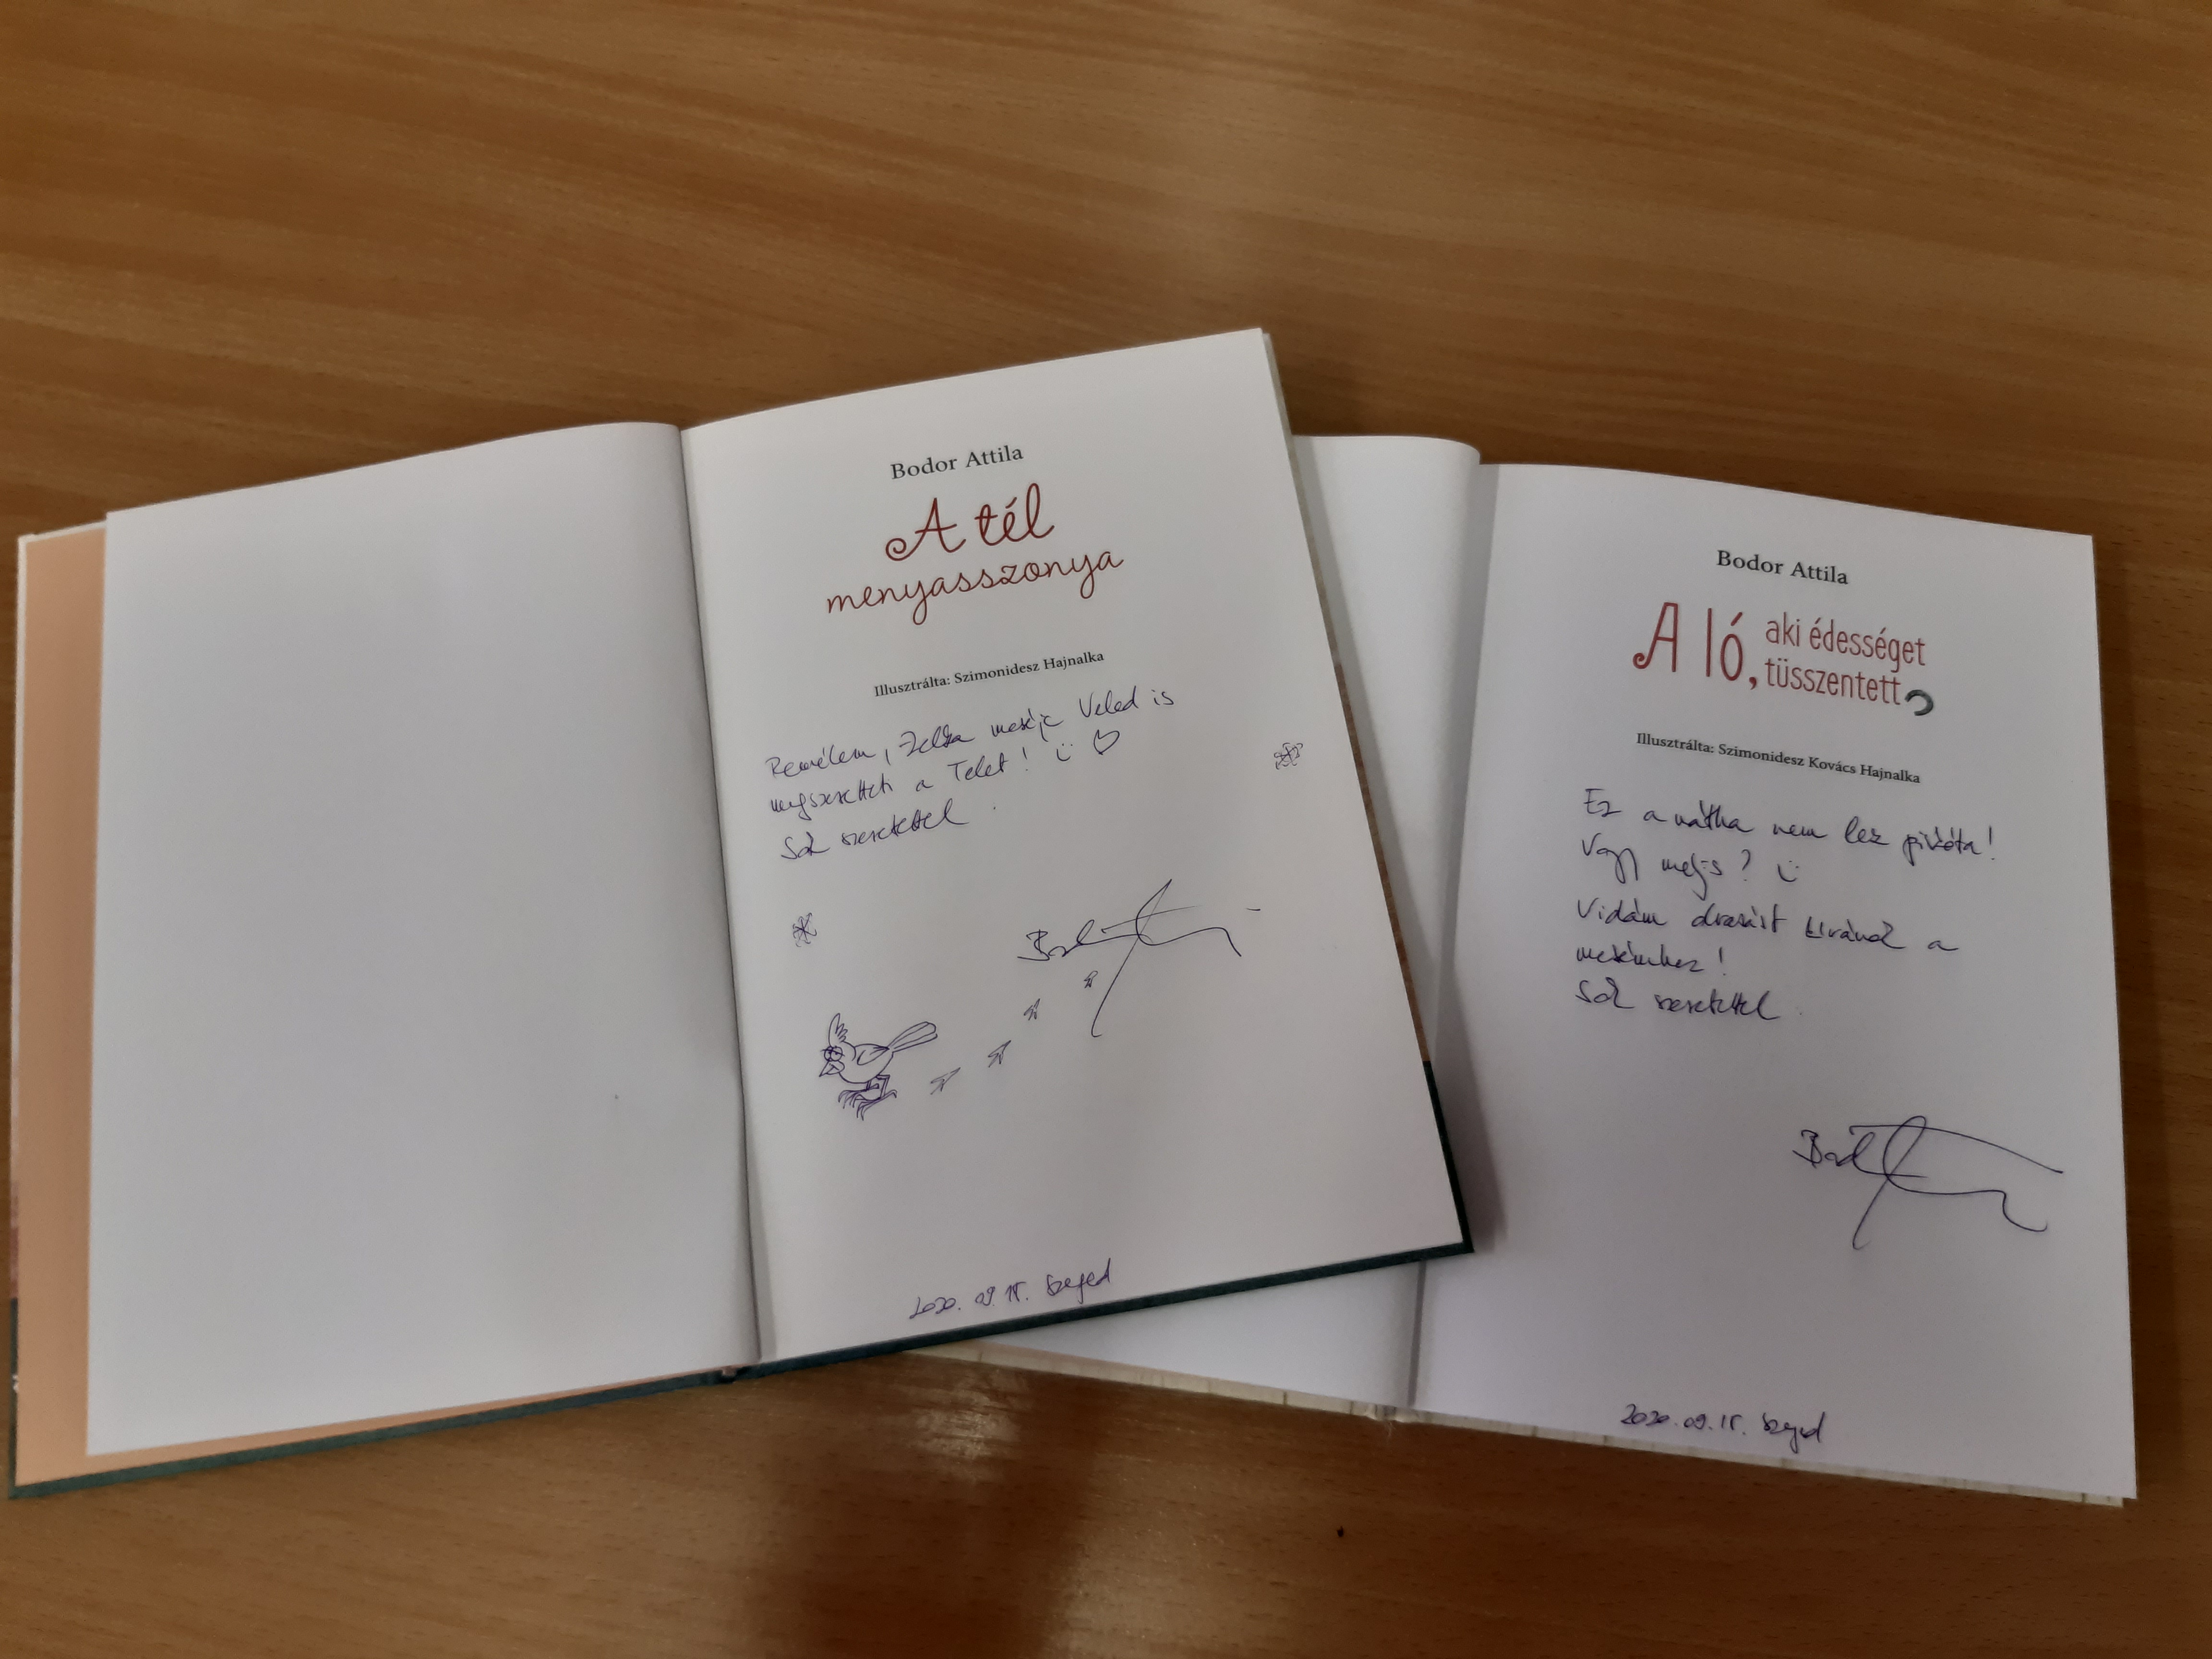 Bodor Attila
A tél
menyasszonya
Illusztrálta: Szimonidesz Hajnalka
Remélem, Zelka meséje Veled is
megszeretteti a Telet!
Sok szeretettel
2020. 09. Szeged
Bodor Attila
A ló, aki édességet
tüsszentett
Illusztrálta: Szimonidesz Kovács Hajnalka
Ez a nátha nem lesz piskóta!
Vagy mégis?
Vidám olvasást kívánok a
mesémhez!
Sok szeretettel
2020. 09. Szeged